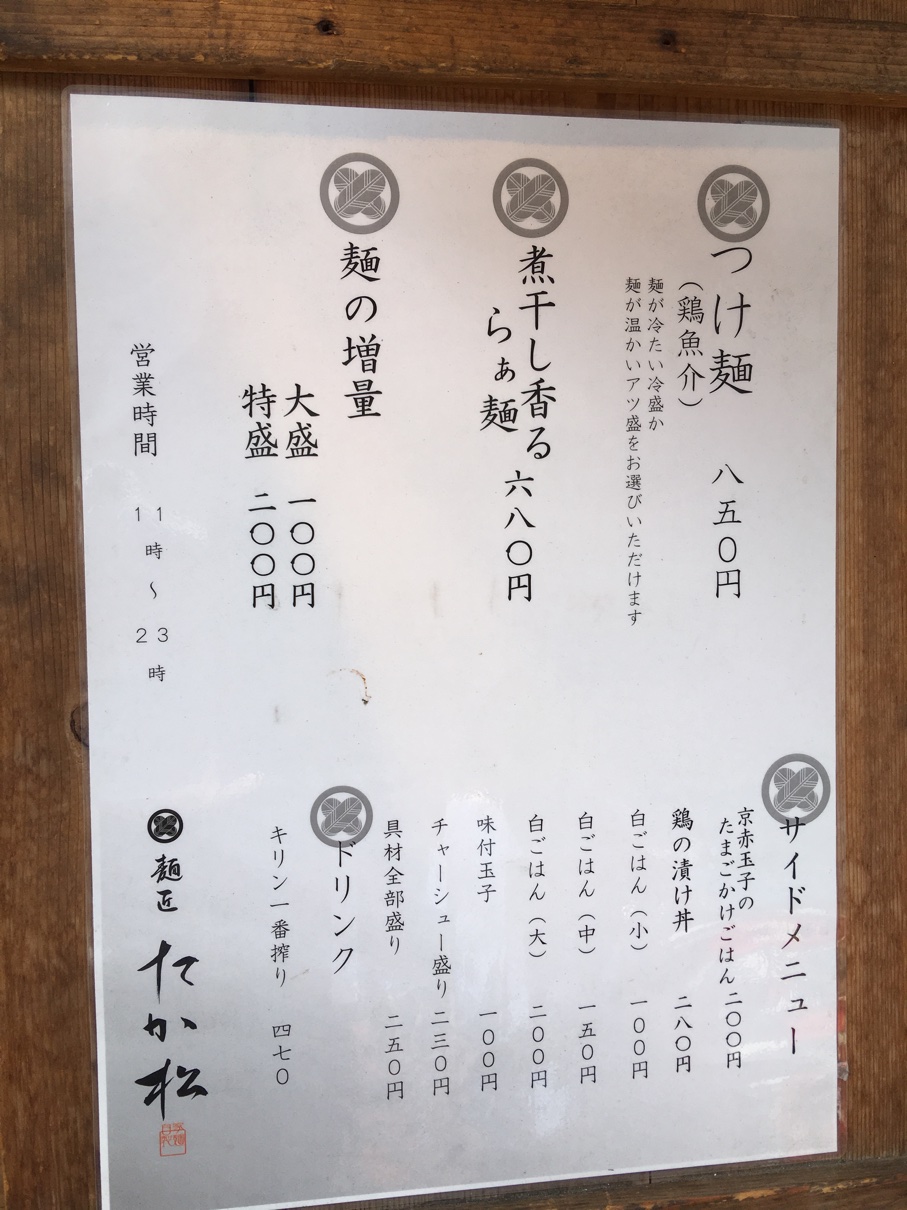 つけ麺 八五〇円
(鶏魚介)
麺が冷たい冷盛か
麺が温かいアツ盛をお選びいただけます
煮干し香る
らぁ麺 六八〇円
麺の増量
大盛 一〇〇円
特盛 二〇〇円
営業時間 11時~23時
サイドメニュー
京赤玉子の
たまごかけごはん 二〇〇円
鶏の漬け丼 二八〇円
白ごはん(小) 一〇〇円
白ごはん(中) 一五〇円
白ごはん(大) 二〇〇円
味付玉子 一〇〇円
チャーシュー盛り 二三〇円
具材全部盛り 二五〇円
ドリンク
キリン一番搾り 四七〇
麺匠 たか松